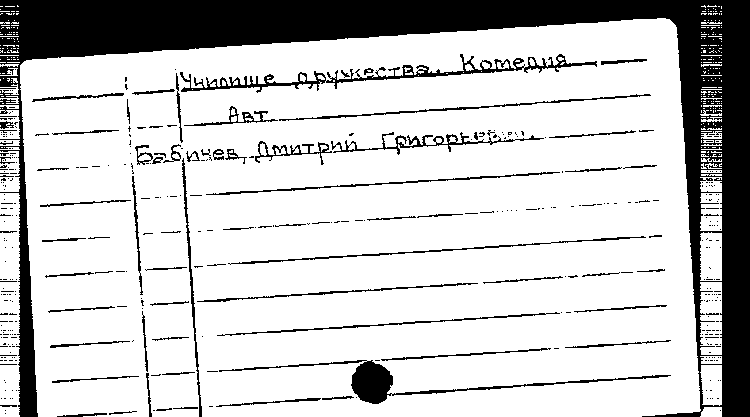 Училище дружества. Комедия
Авт.
Бабичев, Дмитрий Григорьевич.